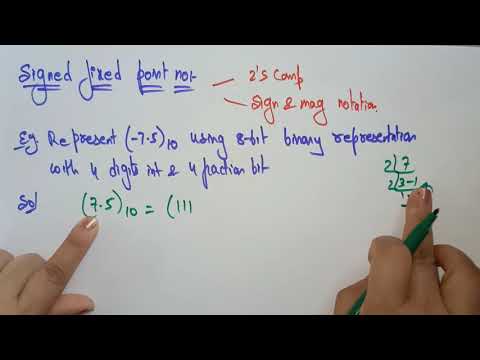 Signed fixed point not- 2's Comp
sign & mag notation
Eg. Represent (-7.5)10 using 8-bit binary representation
with 4 digits int & 4 fraction bit
Sol (7.5)10 = (111
2 7
2 3-1
1-